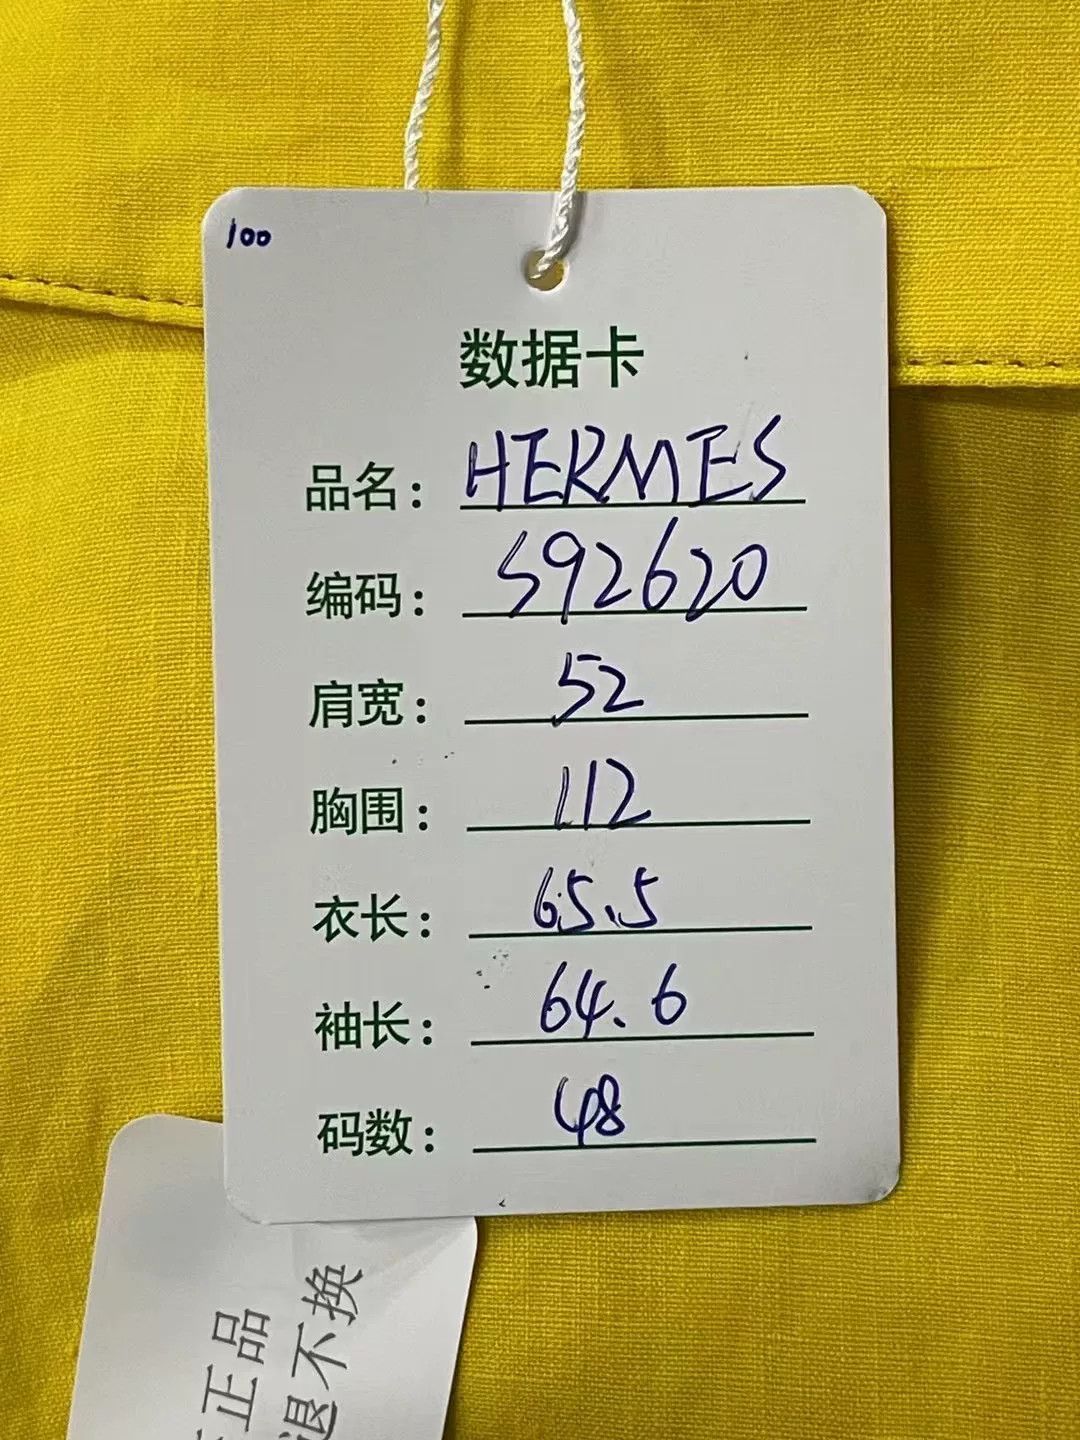 100
数据卡
品名: HERMES
编码: S92620
肩宽: 52
胸围: 112
衣长: 65.5
袖长: 64.6
码数: 48
正品
退不换